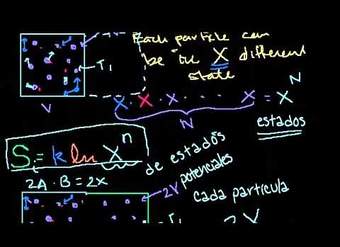 Each particle can
be in X different
state
T₁
V
X · X · X · · · · X = X^N
N
estados
S = k ln X^n
de estados
potenciales
2A · B = 2X
2V
cada particula
T₁
2V